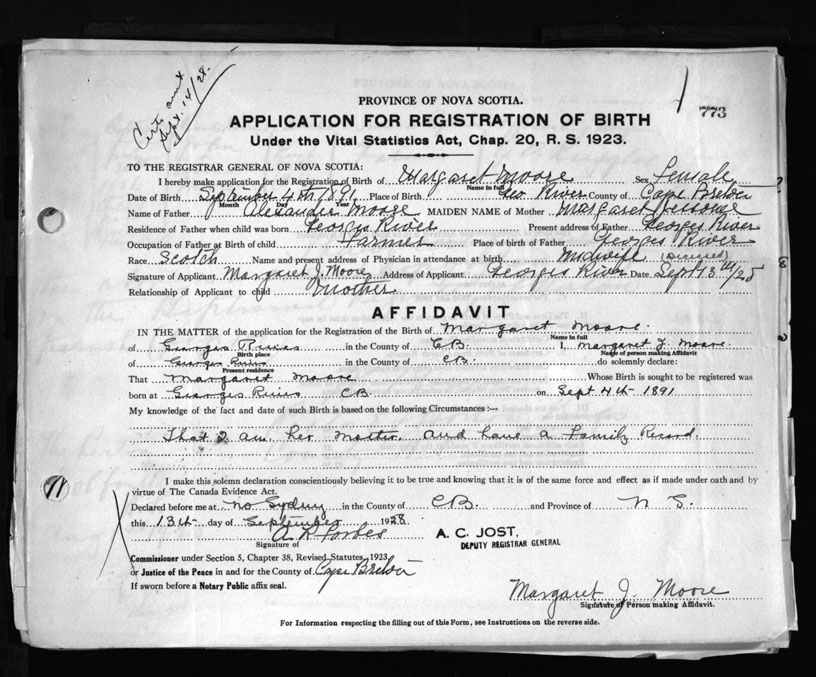 Certs sent
Sept. 14/28.
773
PROVINCE OF NOVA SCOTIA.
APPLICATION FOR REGISTRATION OF BIRTH
Under the Vital Statistics Act, Chap. 20, R. S. 1923.
TO THE REGISTRAR GENERAL OF NOVA SCOTIA:
I hereby make application for the Registration of Birth of Margaret Moore Sex Female
Name in full
Date of Birth September 4th 1891 Place of Birth Geo River County of Cape Breton
Month Day Year
Name of Father Alexander Moore MAIDEN NAME of Mother Margaret
Residence of Father when child was born Georges River Present address of Father Georges River
Occupation of Father at Birth of child Farmer Place of birth of Father Georges River
Race Scotch Name and present address of Physician in attendance at birth Midwife (Deceased)
Signature of Applicant Margaret J. Moore Address of Applicant Georges River Date Sept 13th/28
Relationship of Applicant to child Mother
AFFIDAVIT
IN THE MATTER of the application for the Registration of the Birth of Margaret Moore.
Name in full
of Georges River in the County of C.B. I, Margaret J. Moore
Birth place
Name of person making Affidavit
of Georges River in the County of C.B. do solemnly declare:
Present residence
That Margaret Moore Whose Birth is sought to be registered was
born at Georges River C.B. on Sept 4th 1891
My knowledge of the fact and date of such Birth is based on the following Circumstances:—
That I am her Mother. and have a Family Record.
I make this solemn declaration conscientiously believing it to be true and knowing that it is of the same force and effect as if made under oath and by
virtue of The Canada Evidence Act.
Declared before me at No Sydney in the County of C.B. and Province of N S.
this 13th day of September 1928
A. C. JOST,
DEPUTY REGISTRAR GENERAL
Signature of
Commissioner under Section 5, Chapter 38, Revised Statutes, 1923
or Justice of the Peace in and for the County of Cape Breton
If sworn before a Notary Public affix seal.
Margaret J. Moore
Signature of Person making Affidavit.
For Information respecting the filling out of this Form, see Instructions on the reverse side.